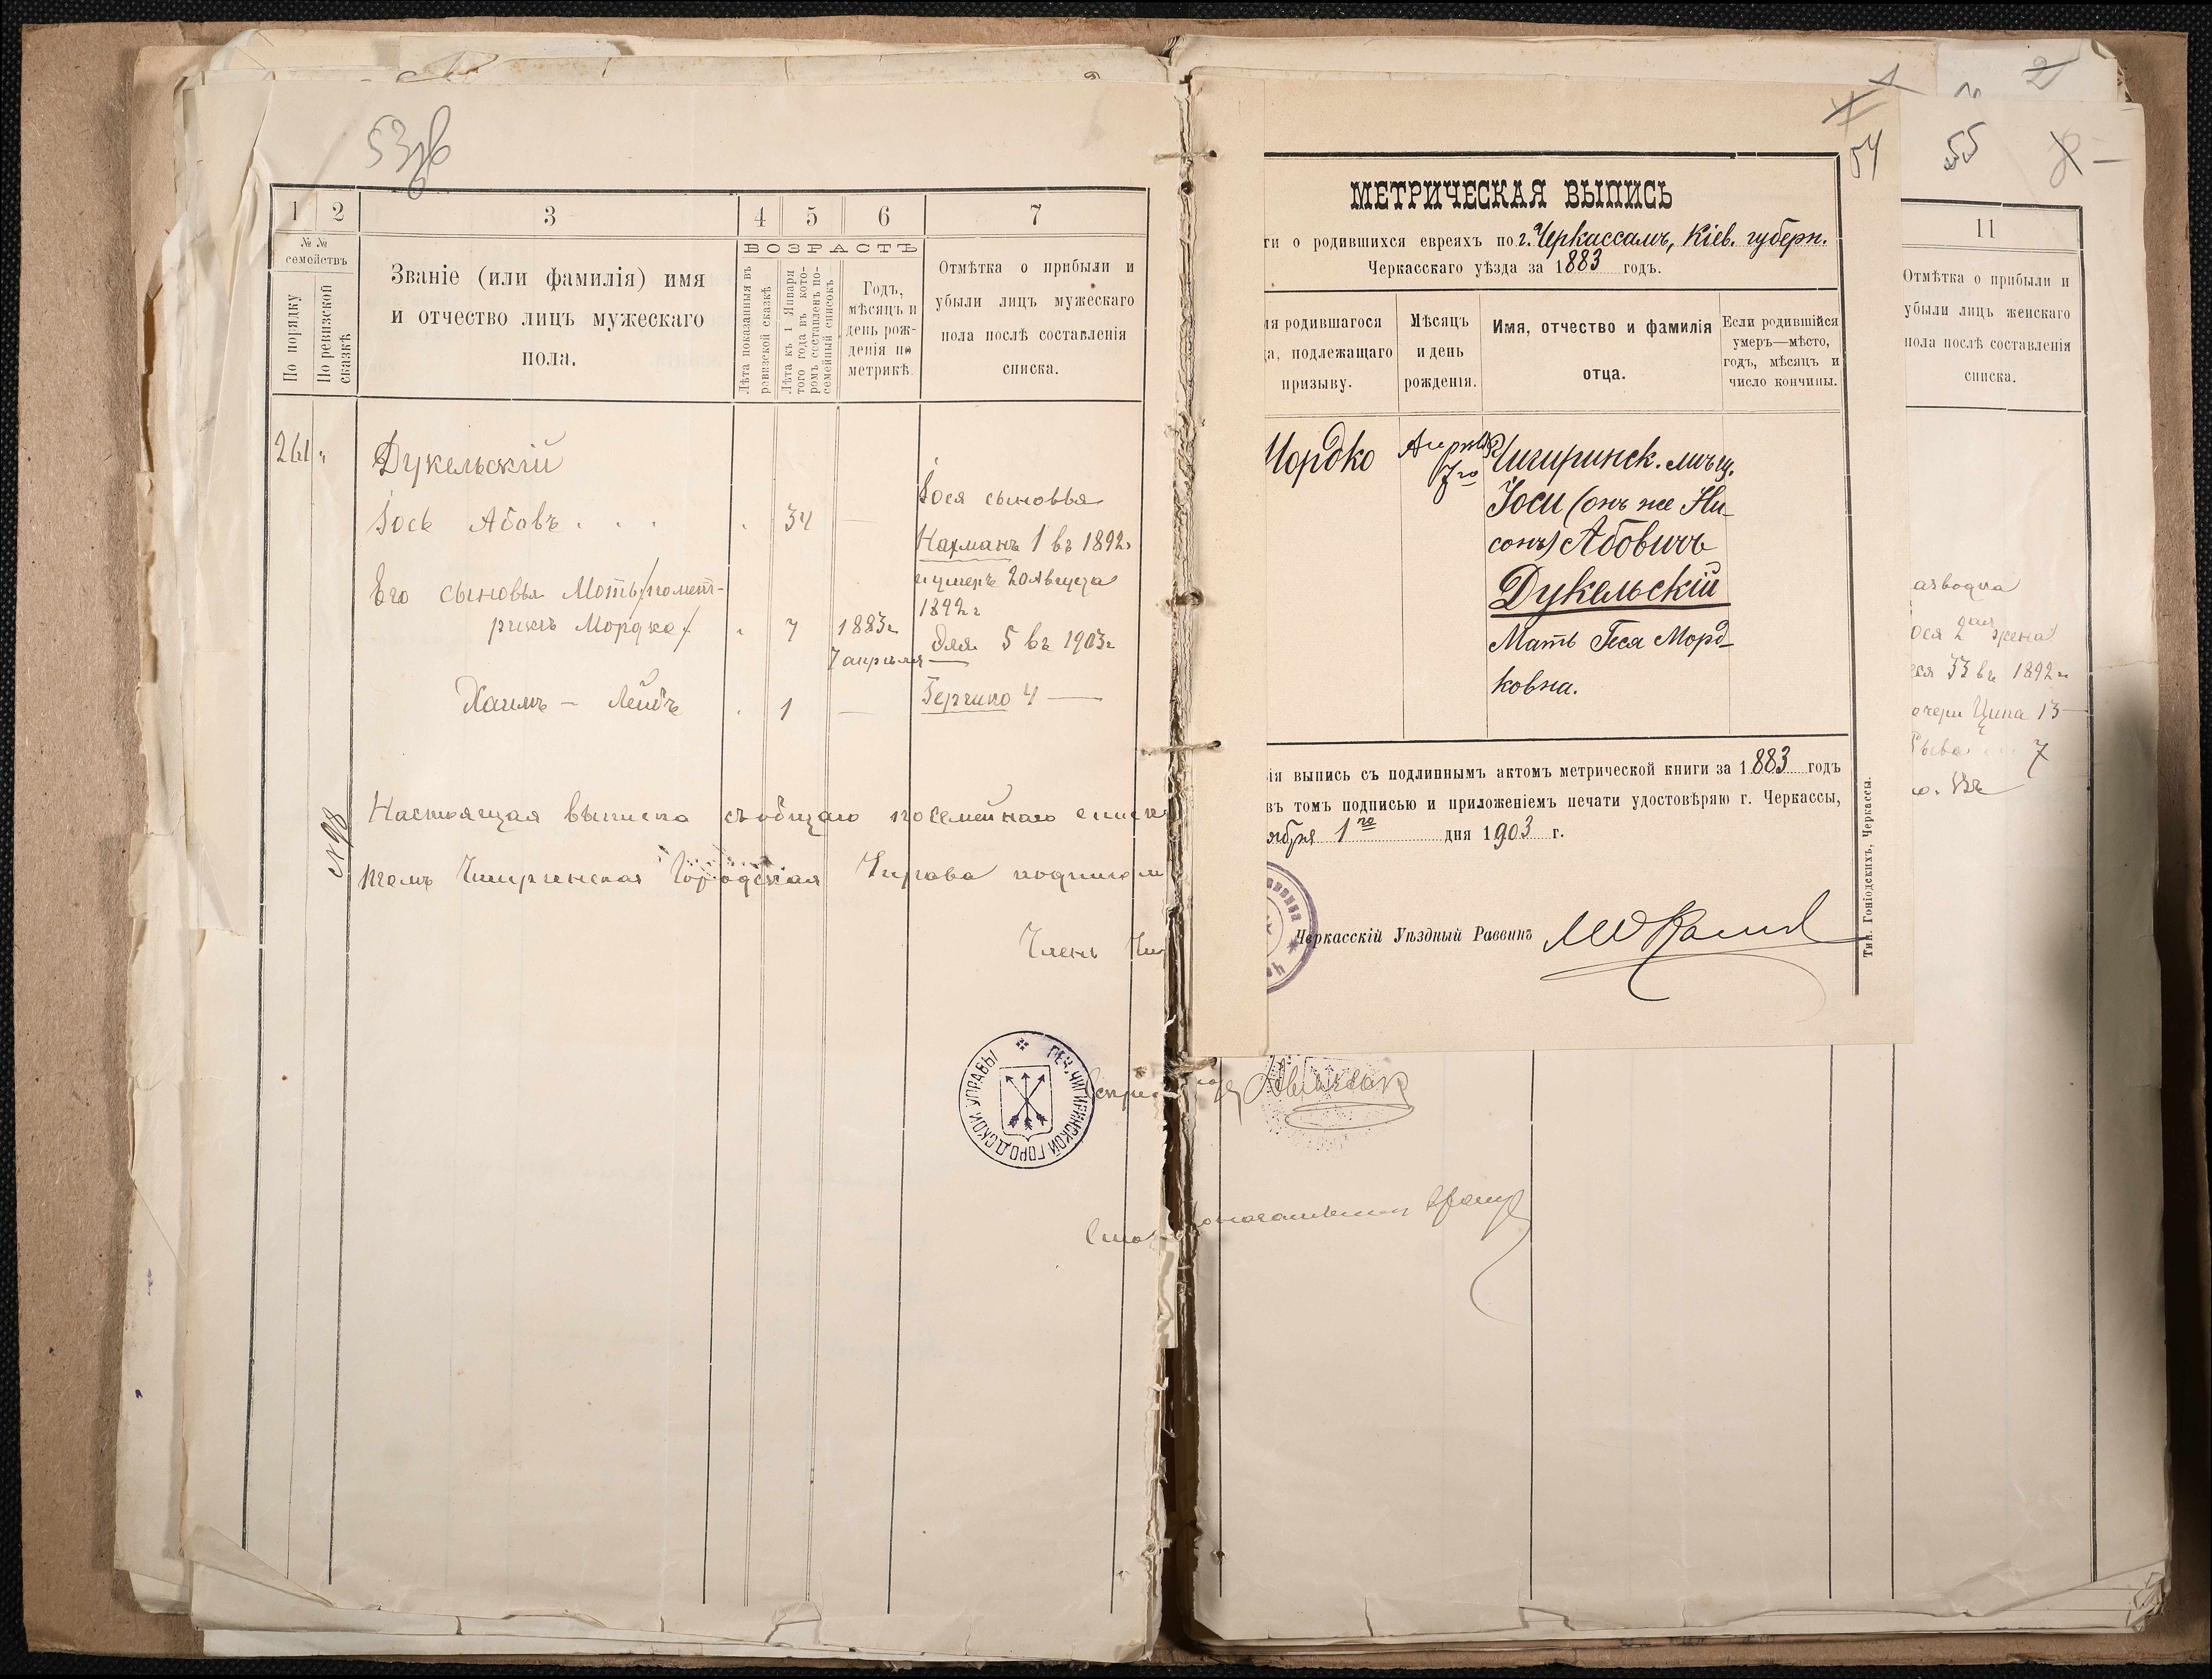 53 об
1 2 3 4 5 6 7
№ №
семействъ
По порядку
По ревизской
сказкѣ
Званіе (или фамилія) имя
и отчество лицъ мужескаго
пола.
ВОЗРАСТЪ
Лѣта показанныя въ
ревизской сказкѣ
Лѣта къ 1 Января
того года въ кото-
ромъ составленъ по-
семейный списокъ
Годъ,
мѣсяцъ и
день рож-
денія по
метрикѣ.
Отмѣтка о прибыли и
убыли лицъ мужескаго
пола послѣ составленія
списка.
261
Дукельскій
Іось Абовъ . . . 34
Его сыновья Моть /по мет-
рикѣ Мордко/ 7 1883г
7 апрѣля
Хаимъ - Лейбъ 1
Іося сыновья
Нахманъ 1 въ 1892г
и умеръ 20 Августа
1892г
5 въ 1903г
4
№ 98
Настоящая выписка
Чигиринская Городская Управа
Членъ
ПЕЧ. ЧИГИРИНСКОЙ ГОРОДСКОЙ УПРАВЫ
54
МЕТРИЧЕСКАЯ ВЫПИСЬ
ти о родившихся евреяхъ по г. Черкассамъ, Кіев. губерн.
Черкасскаго уѣзда за 1883 годъ.
мя родившагося
а, подлежащаго
призыву.
Мѣсяцъ
и день
рожденія.
Имя, отчество и фамилія
отца.
Если родившійся
умеръ—мѣсто,
годъ, мѣсяцъ и
число кончины.
Мордко
Апрѣля
7го
Чигиринск. мѣщ.
Іоси (онъ же Ни-
сонъ) Абовичъ
Дукельскій
Мать Геся Морд-
ковна.
ія выпись съ подлиннымъ актомъ метрической книги за 1883 годъ
въ томъ подписью и приложеніемъ печати удостовѣряю г. Черкассы,
ября 1го дня 1903 г.
Черкасскій Уѣздный Раввинъ
Тип. Гоніодскихъ, Черкассы.
55
11
Отмѣтка о прибыли и
убыли лицъ женскаго
пола послѣ составленія
списка.
азводка
ося 2ая жена
33 въ 1892г
очери Ципа 13
7